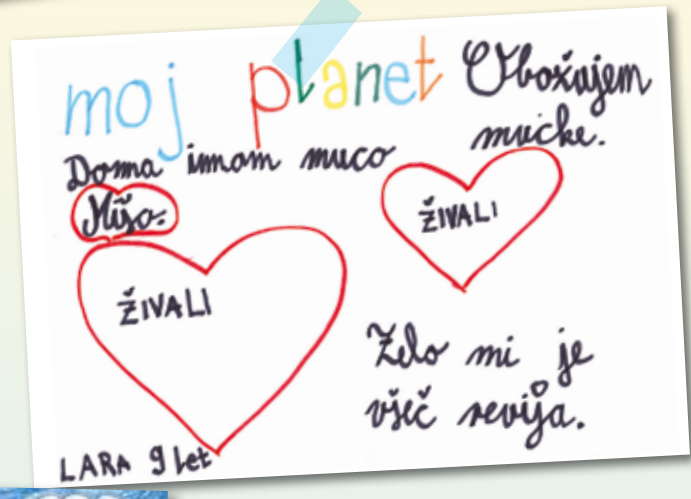 moj planet
Obožujem
mucke.
Doma imam muco
Mišo.
ŽIVALI
ŽIVALI
Želo mi je
všeč revija.
LARA 9 let